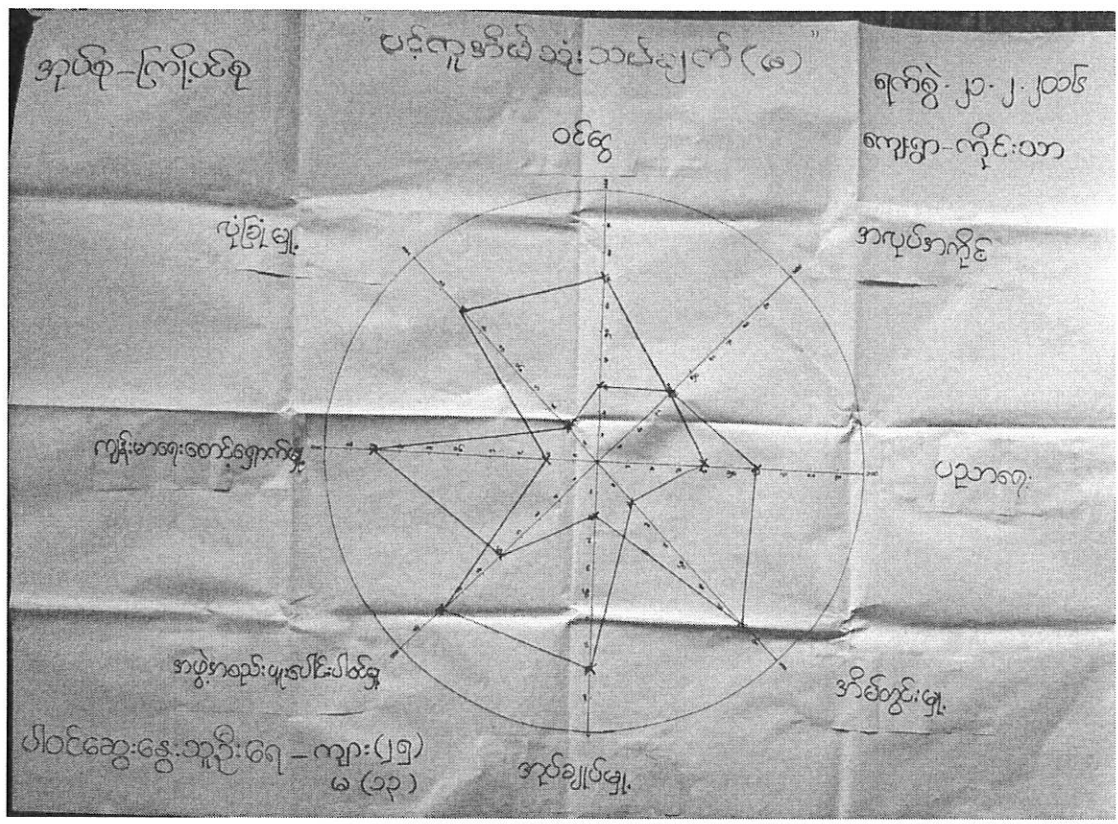 အုပ်စု-ကြို့ပင်စု
"ပင့်ကူအိမ်သုံးသပ်ချက် (မ)"
ရက်စွဲ.၂၁.၂.၂၀၁၆
ကျေးရွာ-ကိုင်းသာ
ဝင်ငွေ
လုံခြုံမှု့
အလုပ်အကိုင်
ကျန်းမာရေးစောင့်ရှောက်မှု့
ပညာရေး
အဖွဲ့အစည်းပူးပေါင်းပါဝင်မှု့
အိမ်တွင်းမှု့
အုပ်ချုပ်မှု့
ပါဝင်ဆွေးနွေးသူဦးရေ - ကျား (၂၅)
မ (၁၃)